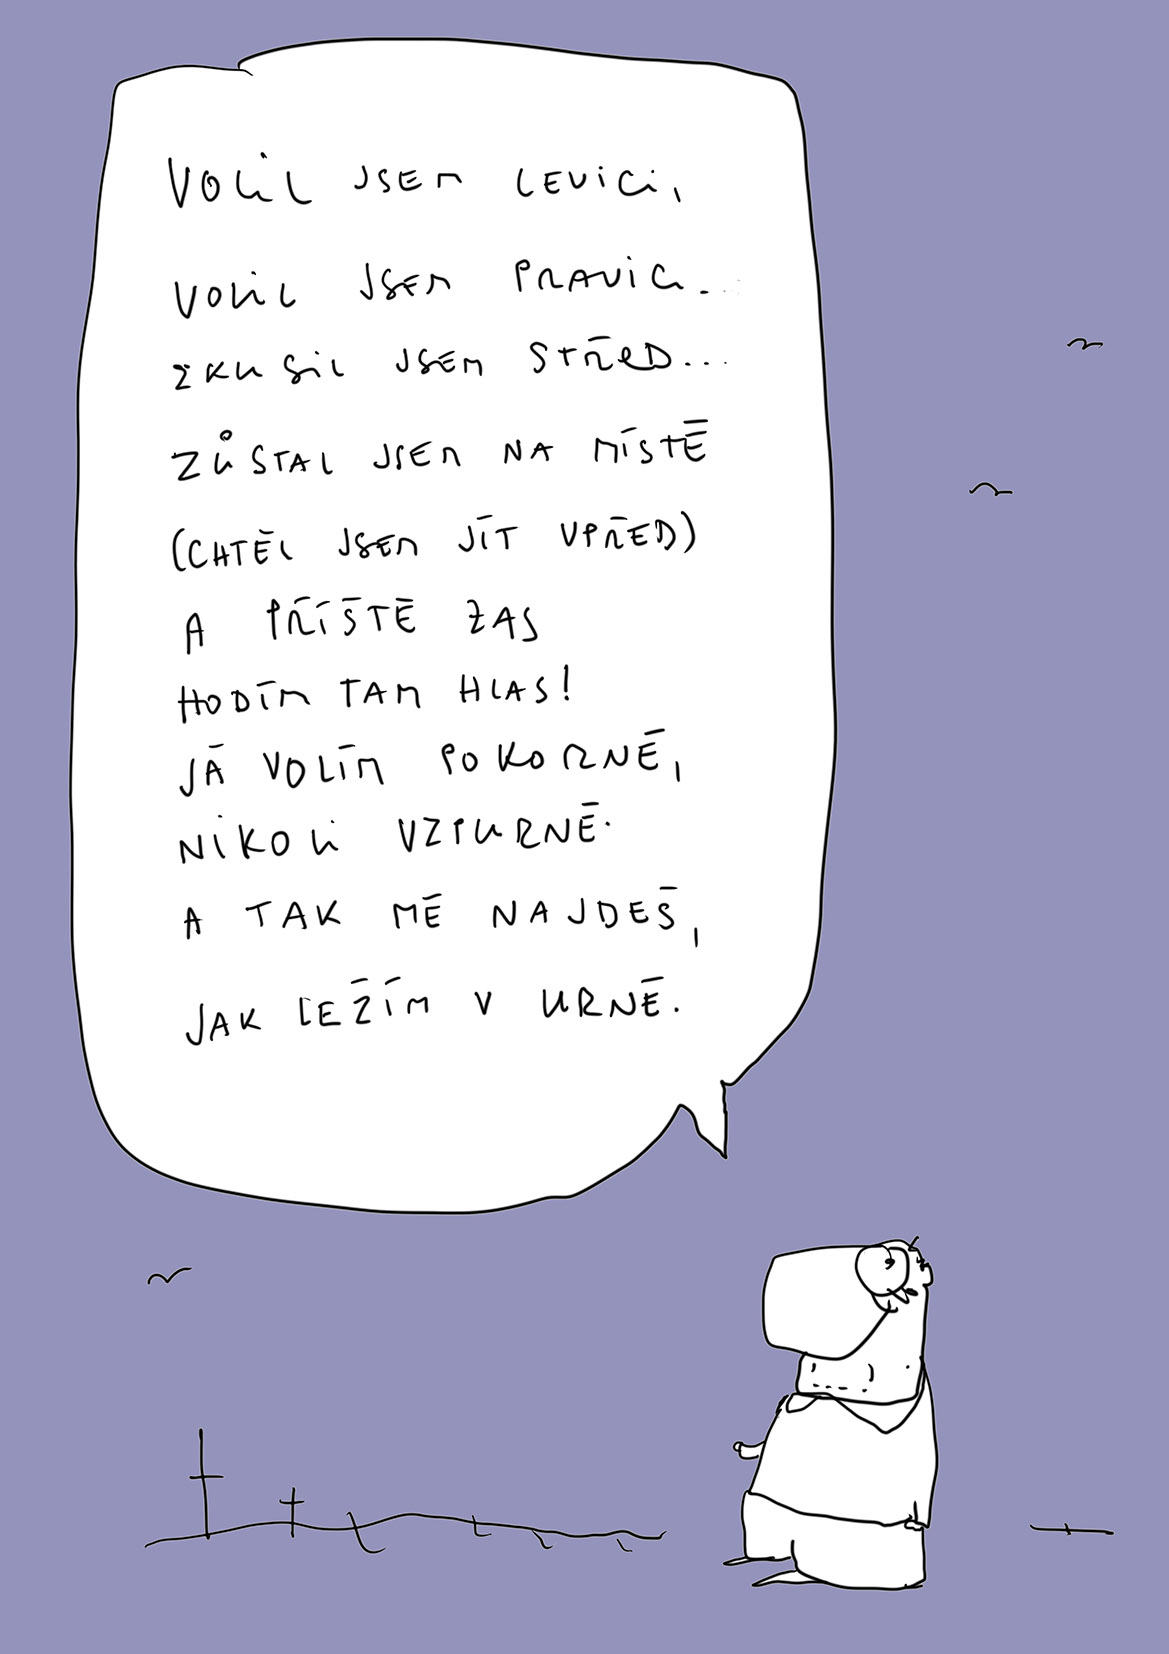 VOLIL JSEM LEVICI,
VOLIL JSEM PRAVICI...
ZKUSIL JSEM STŘED...
ZŮSTAL JSEM NA MÍSTĚ
(CHTĚL JSEM JÍT VPŘED)
A PŘÍŠTĚ ZAS
HODÍM TAM HLAS!
JÁ VOLÍM POKORNĚ,
NIKOLI VZPURNĚ.
A TAK MĚ NAJDEŠ,
JAK LEŽÍM V URNĚ.